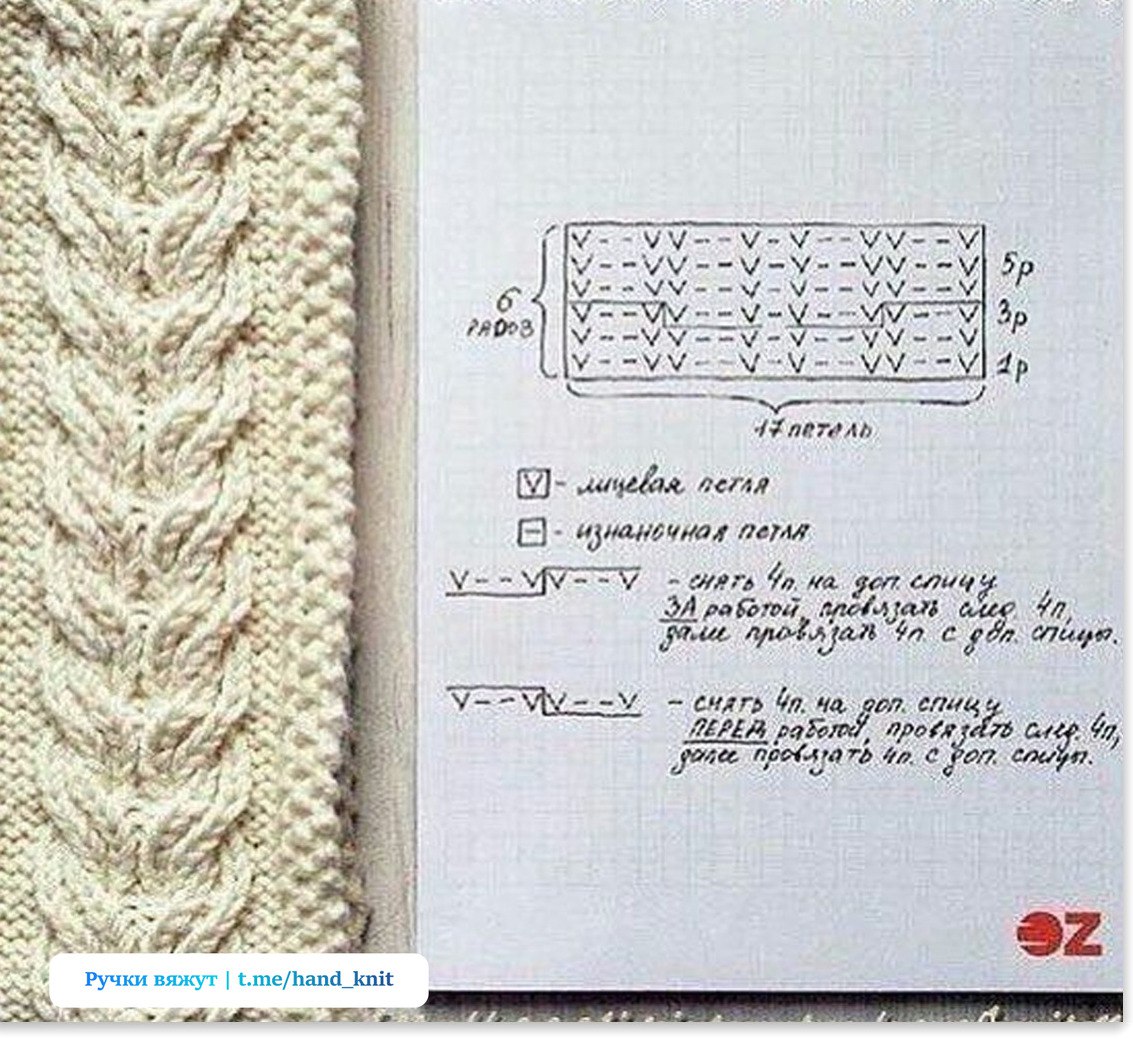 V--VV--V-V--VV--V
V--VV--V-V--VV--V 5р
V--VV--V-V--VV--V
6 рядов
V--VV--V-V--VV--V 3р
V--VV--V-V--VV--V
V--VV--V-V--VV--V 1р
17 петель
V - лицевая петля
− - изнаночная петля
V--VV--V - снять 4п. на доп. спицу
ЗА работой, провязать след. 4п,
далее провязать 4п. с доп. спицы.
V--VV--V - снять 4п. на доп. спицу
ПЕРЕД работой, провязать след. 4п,
далее провязать 4п. с доп. спицы.
ЭZ
Ручки вяжут | t.me/hand_knit